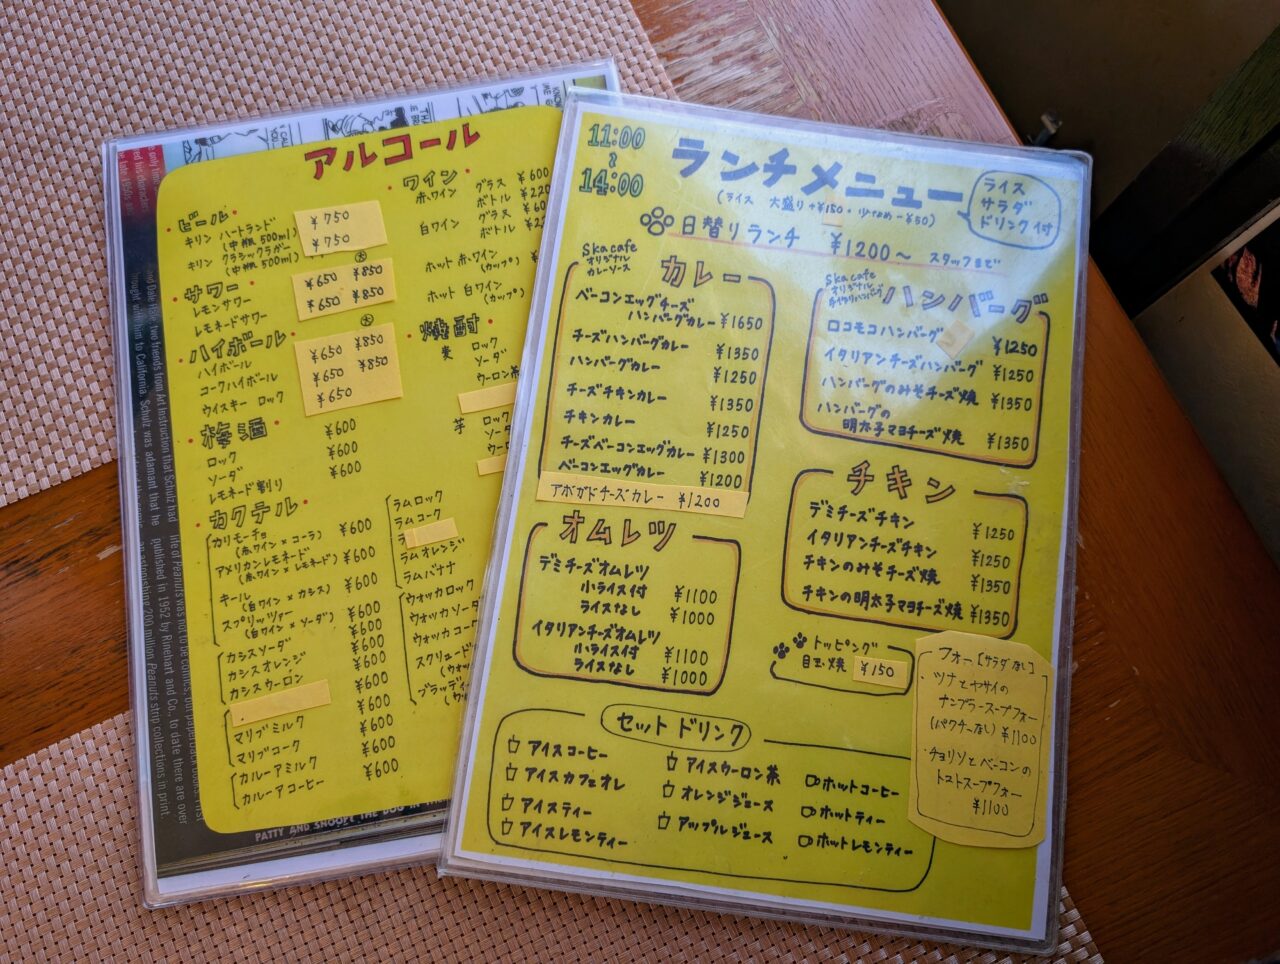 アルコール
・ビール・
キリン ハートランド
(中瓶 500ml)
¥750
キリン クラシックラガー
(中瓶 500ml)
¥750
・サワー・
大
レモンサワー ¥650 ¥850
レモネードサワー ¥650 ¥850
・ハイボール・
大
ハイボール ¥650 ¥850
コークハイボール ¥650 ¥850
ウイスキー ロック ¥650
・梅酒・
ロック ¥600
ソーダ ¥600
レモネード割り ¥600
・カクテル・
カリモーチョ ¥600
(赤ワイン×コーラ)
アメリカンレモネード ¥600
(赤ワイン×レモネード)
キール ¥600
(白ワイン×カシス)
スプリッツァー ¥600
(白ワイン×ソーダ)
カシスソーダ ¥600
カシスオレンジ ¥600
カシスウーロン ¥600
マリブミルク ¥600
マリブコーク ¥600
カルーアミルク ¥600
カルーアコーヒー ¥600
・ワイン・
赤ワイン グラス ¥600
ボトル ¥220
白ワイン グラス ¥60
ボトル ¥22
ホット赤ワイン
(カップ)
ホット白ワイン
(カップ)
・焼酎・
麦 ロック
ソーダ
ウーロン茶
芋 ロック
ソーダ
ウーロ
ラムロック
ラムコーク
ラ
ラムオレンジ
ラムバナナ
ウォッカロック
ウォッカソーダ
ウォッカコーク
スクリュード
(ウォッ
ブラッディー
(ウォ
PATTY AND SNOOPY THE DOG
11:00
～
14:00
ランチメニュー
(ライス 大盛り+¥150・少なめ-¥50)
ライス
サラダ
ドリンク付
日替りランチ ¥1200～ スタッフまで
Ska cafe
オリジナル
カレーソース
カレー
ベーコンエッグチーズ
ハンバーグカレー ¥1650
チーズハンバーグカレー ¥1350
ハンバーグカレー ¥1250
チーズチキンカレー ¥1350
チキンカレー ¥1250
チーズベーコンエッグカレー ¥1300
ベーコンエッグカレー ¥1200
アボガドチーズカレー ¥1200
オムレツ
デミチーズオムレツ
小ライス付 ¥1100
ライスなし ¥1000
イタリアンチーズオムレツ
小ライス付 ¥1100
ライスなし ¥1000
Ska cafe
オリジナル
手作りハンバーグ
ハンバーグ
ロコモコハンバーグ ¥1250
イタリアンチーズハンバーグ ¥1250
ハンバーグのみそチーズ焼 ¥1350
ハンバーグの
明太子マヨチーズ焼 ¥1350
チキン
デミチーズチキン ¥1250
イタリアンチーズチキン ¥1250
チキンのみそチーズ焼 ¥1350
チキンの明太子マヨチーズ焼 ¥1350
トッピング
目玉焼 ¥150
フォー[サラダなし]
・ツナとヤサイの
ナンプラースープフォー
(パクチーなし) ¥1100
・チョリソとベーコンの
トマトスープフォー
¥1100
セットドリンク
アイスコーヒー
アイスカフェオレ
アイスティー
アイスレモンティー
アイスウーロン茶
オレンジジュース
アップルジュース
ホットコーヒー
ホットティー
ホットレモンティー